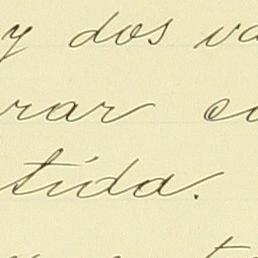 y dos va
rar co
tida.